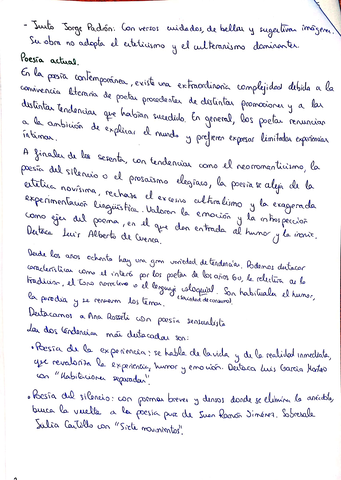 - Justo Jorge Padrón: Con versos cuidados, de bellas y sugestivas imágenes.
Su obra no adopta el esteticismo y el culteranismo dominantes.
Poesía actual.
En la poesía contemporánea, existe una extraordinaria complejidad debida a la
convivencia literaria de poetas procedentes de distintas promociones y a las
distintas tendencias que habían sucedido. En general, los poetas renuncian
a la ambición de explicar el mundo y prefieren expresar limitadas experiencias
íntimas.
A finales de los sesenta, con tendencias como el neorromanticismo, la
poesía del silencio o el prosaísmo elegíaco, la poesía se aleja de la
estética novísima, rechaza el excesivo culturalismo y la exagerada
experimentación lingüística. Valoran la emoción y la introspección
como ejes del poema, en el que dan entrada al humor y la ironía.
Destaca Luis Alberto de Cuenca.
Desde los años ochenta hay una gran variedad de tendencias. Podemos destacar
características como el interés por los poetas de los años 60, la relectura de la
tradición, el tono narrativo o el lenguaje coloquial. Son habituales el humor,
la parodia y se renuevan los temas. (sociedad de consumo)
Destacamos a Ana Rossetti con poesía sensualista
Las dos tendencias más destacadas son:
• Poesía de la experiencia: se habla de la vida y de la realidad inmediata,
que revaloriza la experiencia, humor y emoción. Destaca Luis García Montero
con "Habitaciones separadas".
• Poesía del silencio: con poemas breves y densos donde se elimina la anécdota,
busca la vuelta a la poesía pura de Juan Ramón Jiménez. Sobresale
Julia Castillo con "Siete movimientos".